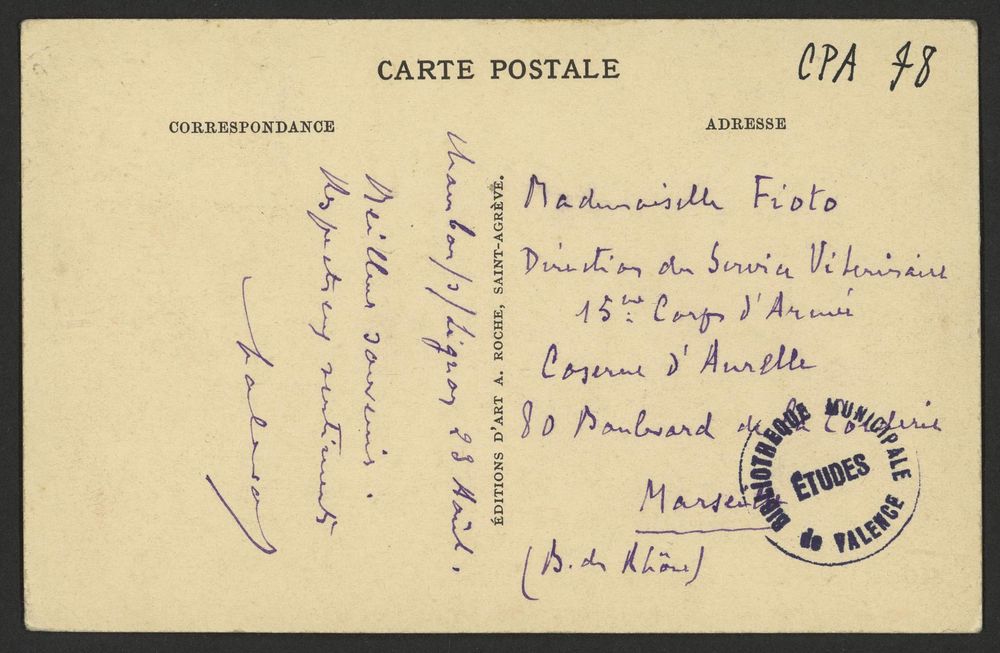 CARTE POSTALE
CPA 78
CORRESPONDANCE
ADRESSE
Chambon s/Lignon 28 Août.
Meilleurs souvenirs.
Respectueux sentiments
ÉDITIONS D'ART A. ROCHE, SAINT-AGRÈVE.
Mademoiselle Fioto
Direction du Service Vétérinaire
15me Corps d'Armée
Caserne d'Aurelle
80 Boulevard de la Corderie
Marseille
(B. du Rhône)
BIBLIOTHEQUE MUNICIPALE
ÉTUDES
de VALENCE